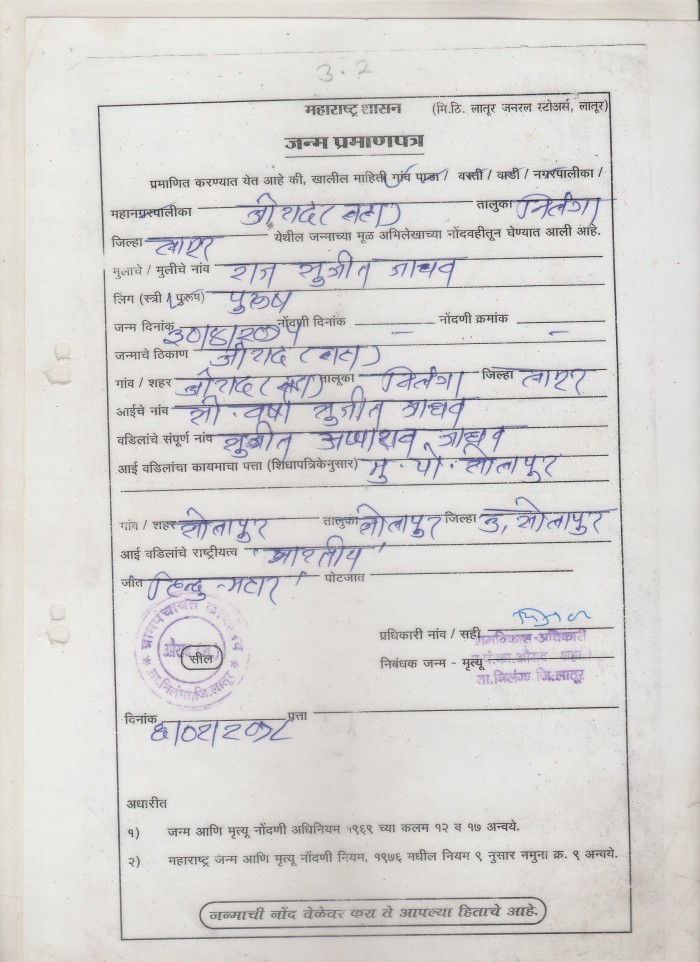 ३.२
महाराष्ट्र शासन (मि.ठि. लातूर जनरल स्टोअर्स, लातूर)
जन्म प्रमाणपत्र
प्रमाणित करण्यात येत आहे की, खालील माहिती गांव पाडा / वस्ती / वाडी / नगरपालीका /
महानगरपालीका औराद (शहा) तालुका निलंगा
जिल्हा लातूर येथील जन्माच्या मूळ अभिलेखाच्या नोंदवहीतून घेण्यात आली आहे.
मुलाचे / मुलीचे नांव राज सुजीत जाधव
लिंग (स्त्री / पुरूष) पुरूष
जन्म दिनांक नोंदणी दिनांक — नोंदणी क्रमांक —
जन्माचे ठिकाण औराद (शहा)
गांव / शहर औराद (शहा) तालूका निलंगा जिल्हा लातूर
आईचे नांव सौ. वर्षा सुजीत जाधव
वडिलांचे संपूर्ण नांव सुजीत अप्पाराव जाधव
आई वडिलांचा कायमाचा पत्ता (शिधापत्रिकेनुसार) मु. पो. सोलापुर
गांव / शहर सोलापुर तालुका सोलापुर जिल्हा उ, सोलापुर
आई वडिलांचे राष्ट्रीयत्व "भारतीय"
जात हिन्दु-महार पोटजात
ग्रामपंचायत कार्यालय
औराद (श)
सील
ता. निलंगा जि. लातूर
प्रधिकारी नांव / सही
ग्रामविकास अधिकारी
निबंधक जन्म - मृत्यू
ता. निलंगा जि. लातूर
दिनांक पत्ता
अधारीत
१) जन्म आणि मृत्यू नोंदणी अधिनियम १९६९ च्या कलम १२ व १७ अन्वये.
२) महाराष्ट्र जन्म आणि मृत्यू नोंदणी नियम, १९७६ मधील नियम ९ नुसार नमुना क्र. ९ अन्वये.
जन्माची नोंद वेळेवर करा ते आपल्या हिताचे आहे.